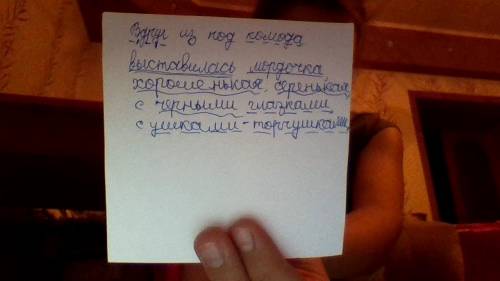 Вдруг из под комода
выставилась мордочка
хорошенькая, серенькая,
с черными глазками
с ушками-торчушками